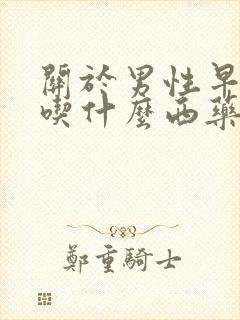 關於男性早
喫什麼西藥
鄭重騎士